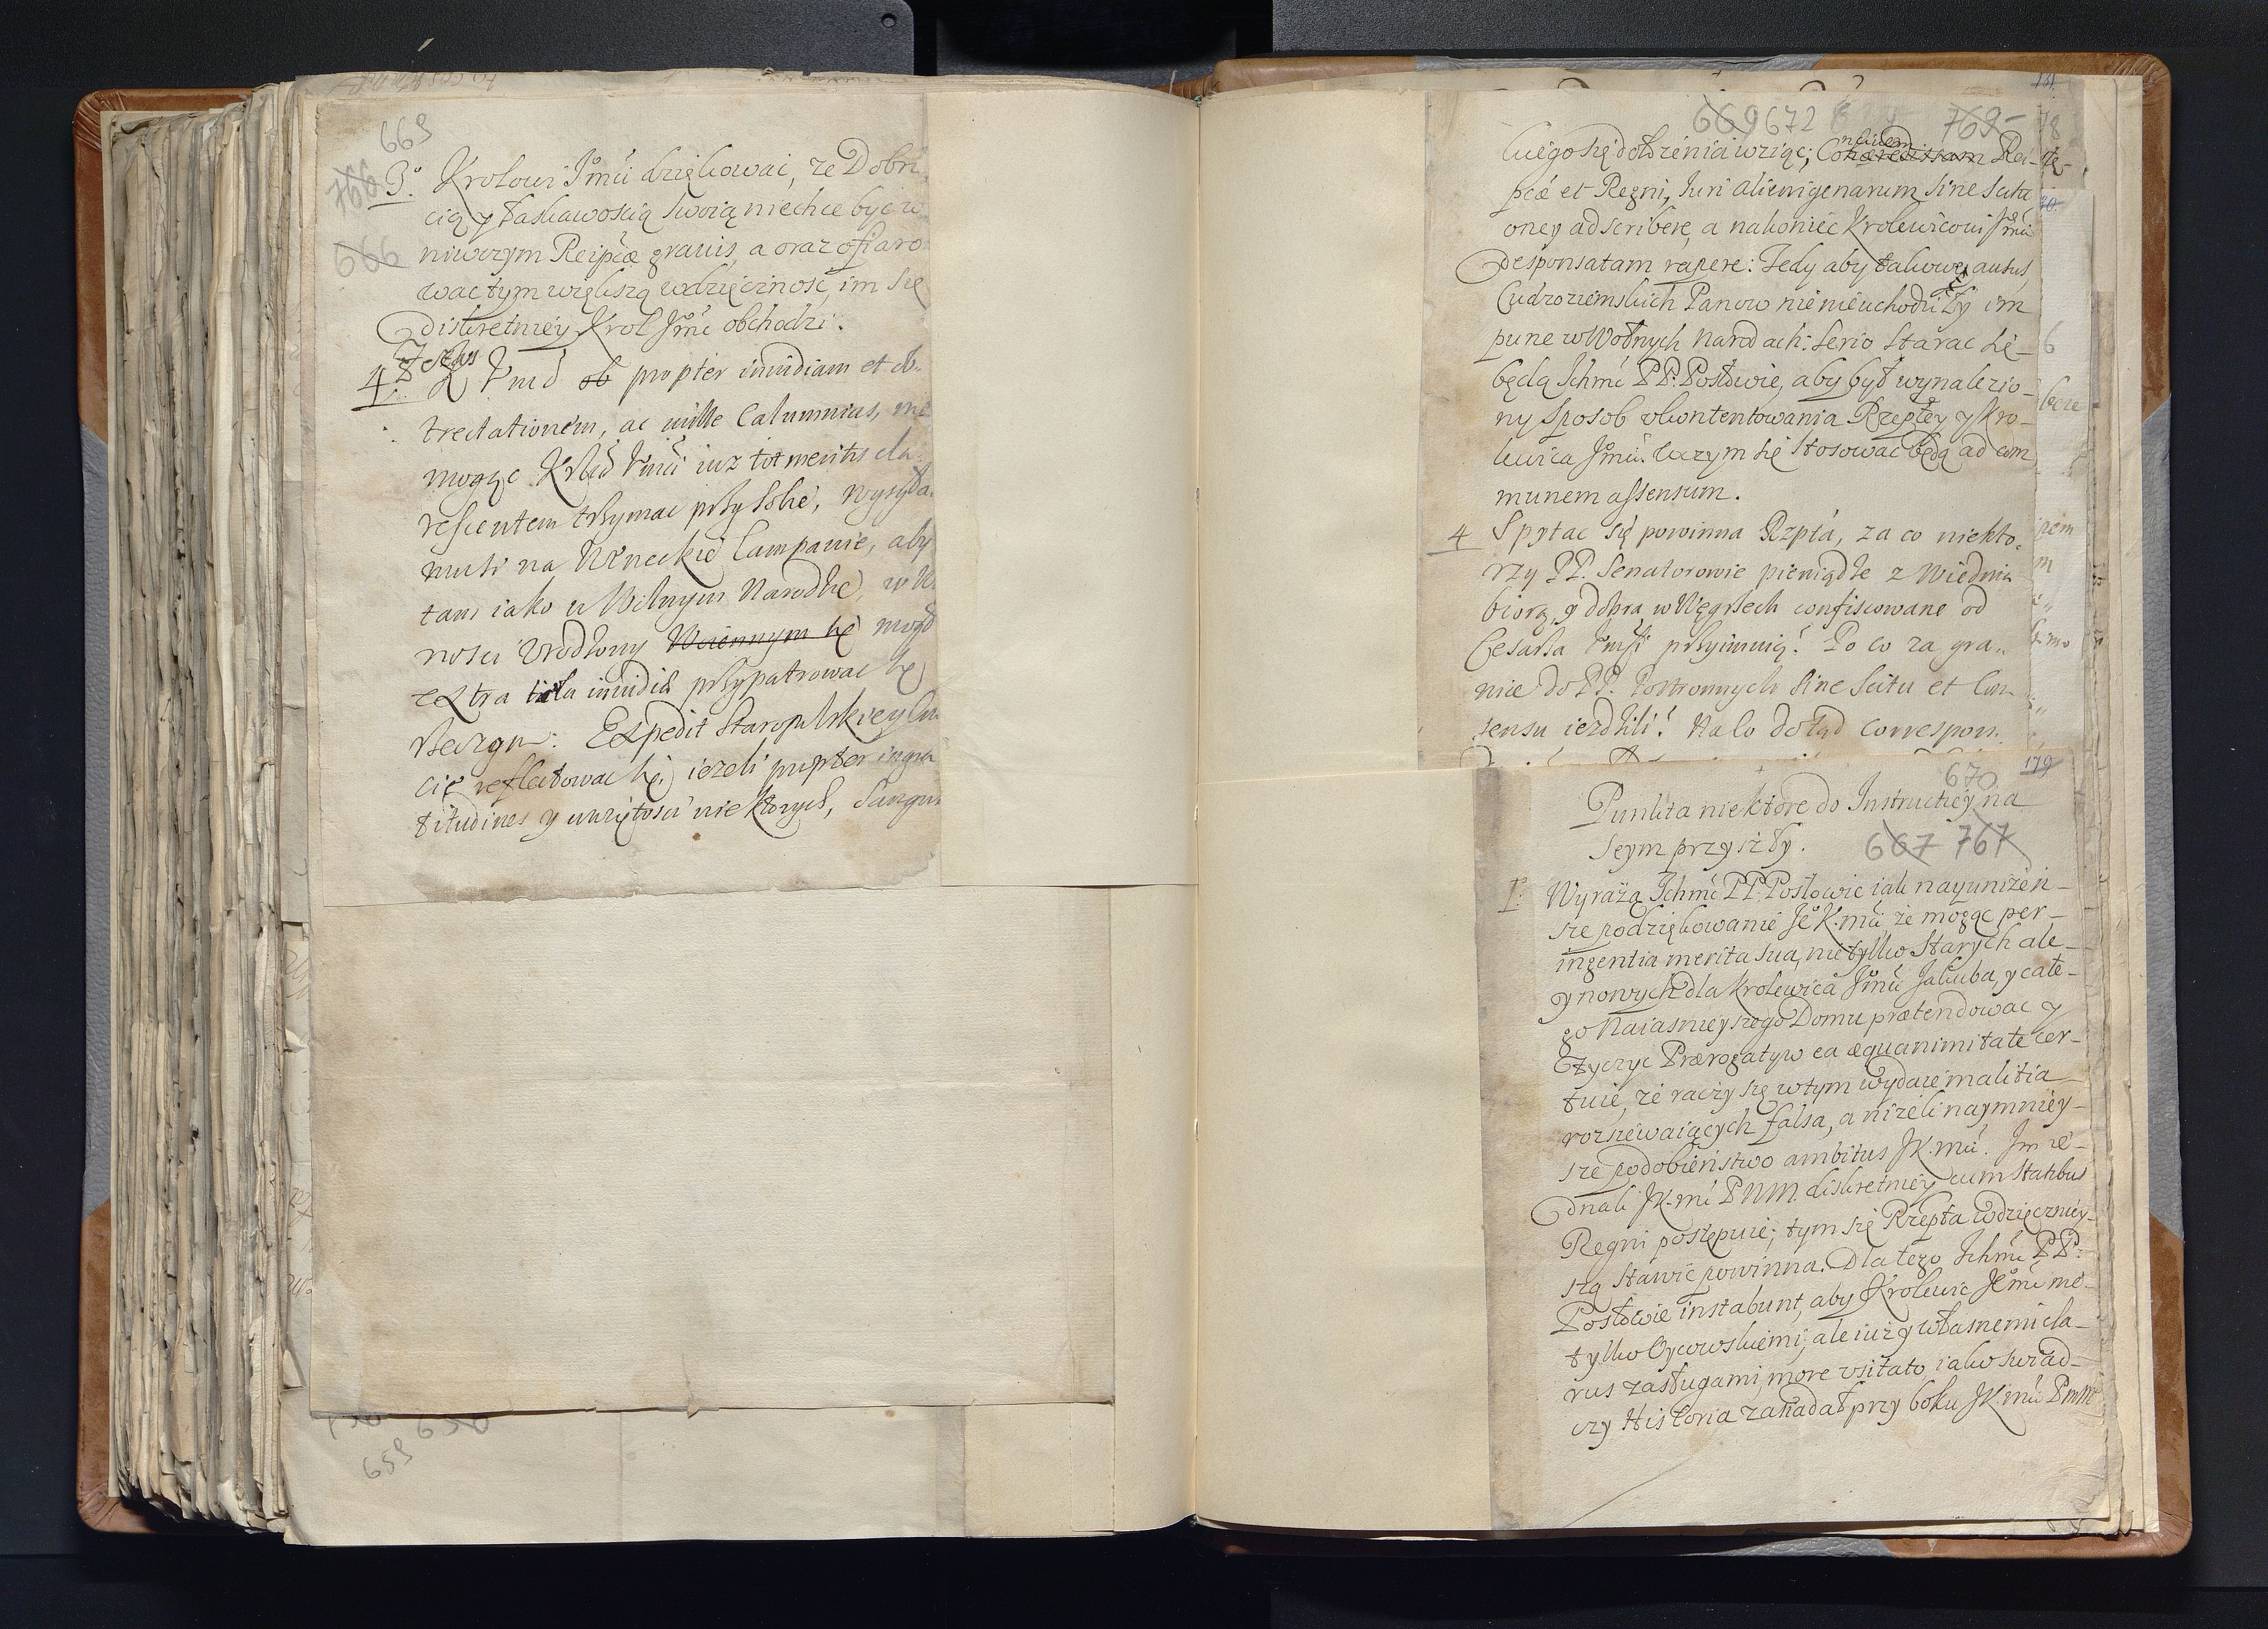 663
766
666
3º Krolowi Jmći dziękowac, że Dobro
cią y łaskawoscią swoią niechce byc w
niwczym Reipcæ gravis, a oraz ofiaro
wac tym większą wdzięcznosc, im się
diskretniey Krol Jmć obchodzi.
4. propter invidiam et ob
trectationem, ac mille Calumnias, nie
mogąc iuz tot meritis cla
rescentem trzymac przy sobie, wysyła
musi na Campanie, aby
tam iako w Wolnym Narodzie, w W
nosci Vrodzony mogł
extra tela invidiæ przypatrowac się
Expedit Staropolskiey
cie reflectowac się, iezeli propter ingra
titudines y niektorych, Sangui
659
669 672 769
luiego się dołozenia wziąc; Rei
pcæ et Regni, Iuri alienigenarum sine scitu
oney adscribere, a nakoniec Krolewicowi Jmći
Desponsatam rapere: Tedy aby takowe ausus
Cudzoziemskich Panow nienieuchodziły im
pune w Wolnych Narodach: serio starac się
będą Ichmć PP. Posłowie, aby był wynalezio
ny sposob vkontentowania Rzeptey y Kro
lewica Jmći. w czym się stosowac będą ad com
munem assensum.
4 Spytac się powinna Rzpta, za co niekto
rzy PP. Senatorowie pieniądze z Wiednia
biorą, y dobra w Węgrzech confiscowane od
Cesarza Jmści przyimuią? Po co za gra
nice do PP. Postronnych sine Scitu et Con
sensu iezdzili? Na co dotąd correspon
670 179
Punkta niektore do Instructiey na
Seym przyszły. 667 767
1. Wyrażą Ichmć PP. Posłowie iak nayunizen
sze podziękowanie Je K. mći, że mogąc per
ingentia merita sua, nie tylko starych ale
y nowych dla Krolewica Jmći Jakuba, y całe
go Naiasnieyszego Domu prætendowac y
życzyc Prærogatyw ea æquanimitate cer
tuie, że raczy się w tym wydaie malitia
rozsiewaiących falsa, a nizeli naymniey
sze podobieństwo ambitus JK. mći. Im ie
dnak JK. mć PNM. diskretniey cum statibus
Regni postępuie; tym się Rzepta wdzięczniey
szą stawic powinna. Dla tego Ichmć PP.
Posłowie instabunt, aby Krolewic Jemć nie
tylko Oycowskiemi, ale iuż y własnemi cla
rus zasługami, more vsitato, iako swiad
czy Historia zasiadał przy boku JK. mći PNM